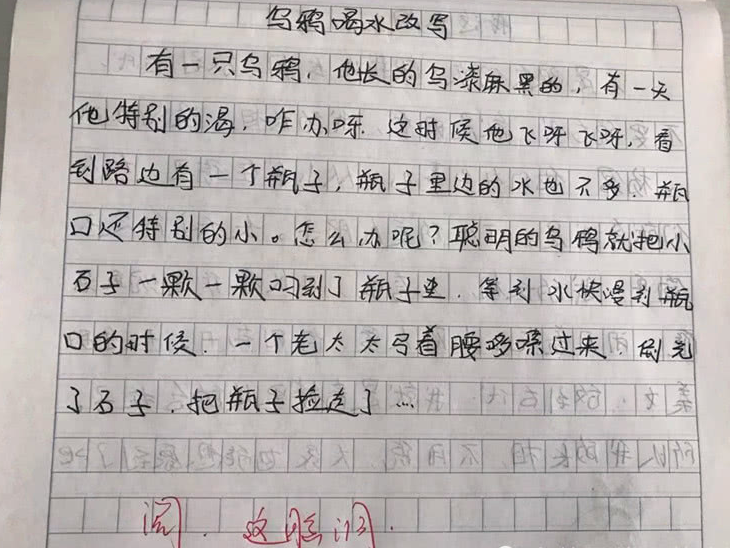 乌鸦喝水改写
有一只乌鸦，他长的乌漆麻黑的，有一天
他特别的渴，咋办呀.这时候他飞呀飞呀，看
到路边有一个瓶子，瓶子里边的水也不多.瓶
口还特别的小。怎么办呢？聪明的乌鸦就把小
石子一颗一颗叼到了瓶子里.等到水快漫到瓶
口的时候.一个老太太弓着腰哆嗦过来.倒光
了石子.把瓶子捡走了…
阅.这